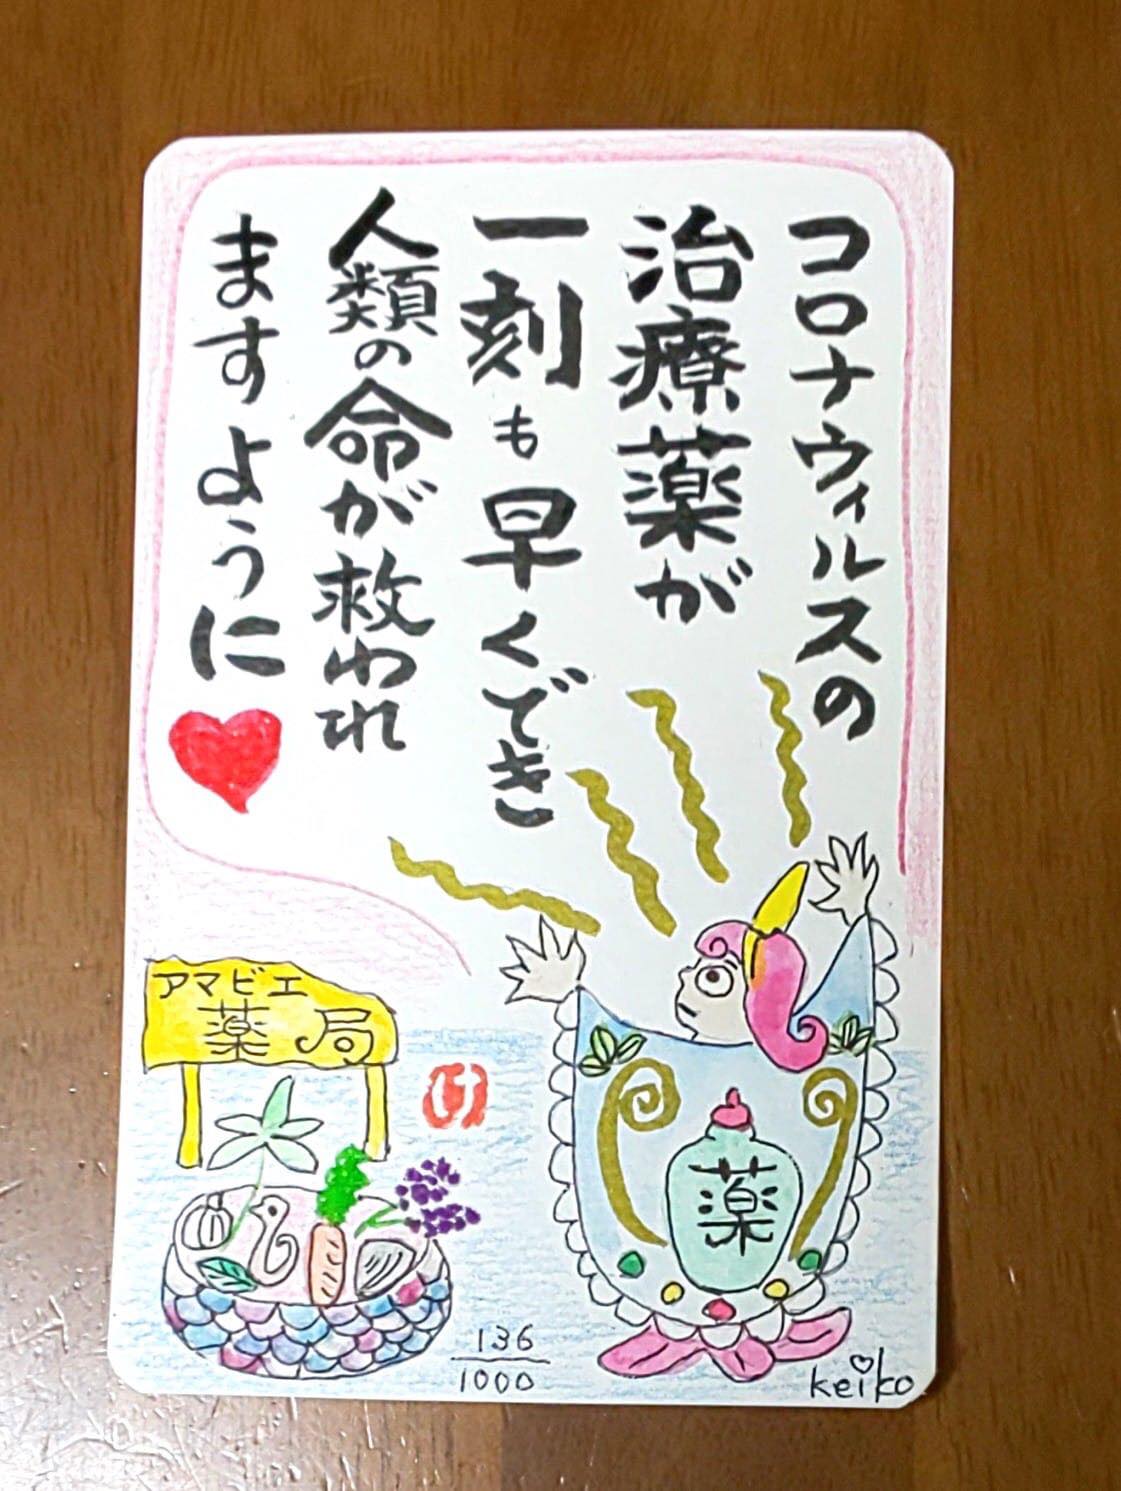 コロナウィルスの
治療薬が
一刻も早くでき
人類の命が救われ
ますように
アマビエ
薬局
け
薬
136
1000
keiko